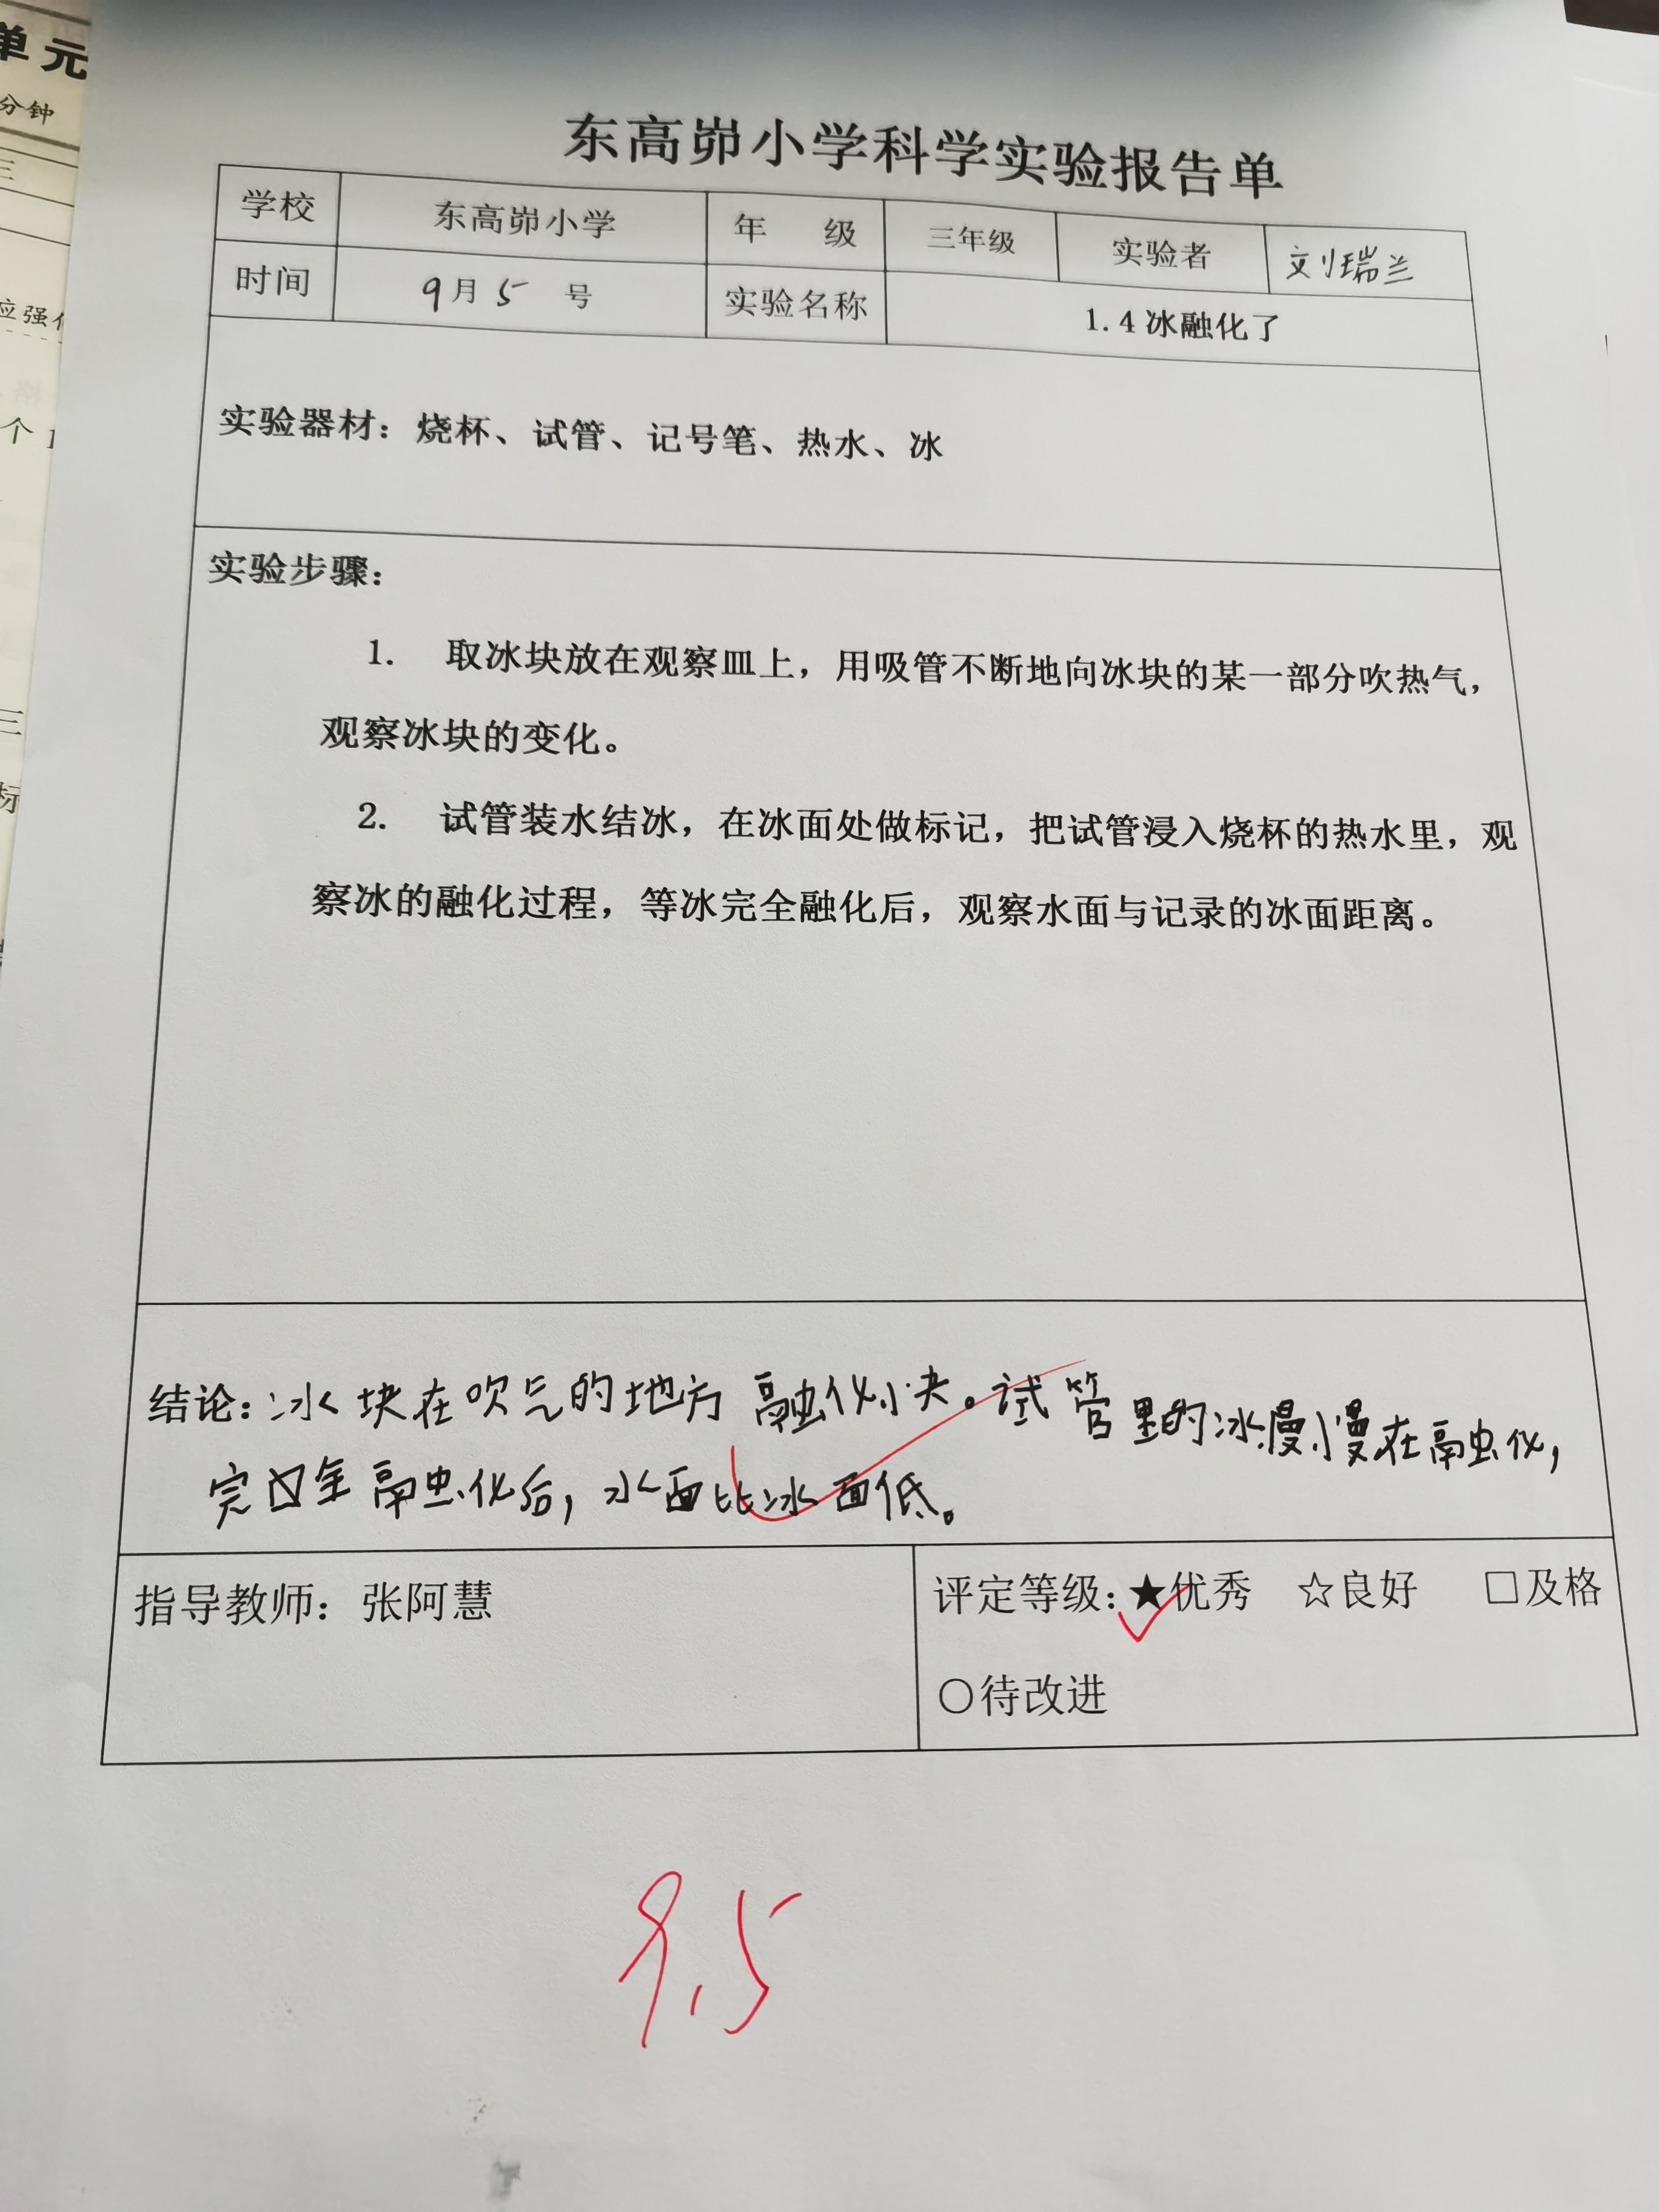 单元
分钟
三
应强化
个1
三
标
东高峁小学科学实验报告单
学校 东高峁小学 年 级 三年级 实验者 刘瑞兰
时间 9月5 号 实验名称 1.4冰融化了
实验器材：烧杯、试管、记号笔、热水、冰
实验步骤：
1. 取冰块放在观察皿上，用吸管不断地向冰块的某一部分吹热气，
观察冰块的变化。
2. 试管装水结冰，在冰面处做标记，把试管浸入烧杯的热水里，观
察冰的融化过程，等冰完全融化后，观察水面与记录的冰面距离。
结论：冰块在吹气的地方融化快。试管里的冰慢慢在融化，
完全融化后，水面比冰面低。
指导教师：张阿慧
评定等级：★优秀 ☆良好 □及格
○待改进
9.5